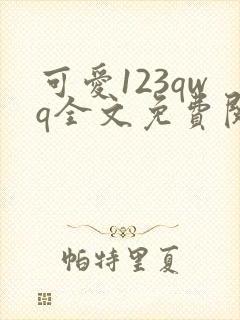 可愛123qw
q全文免費
帕特里夏